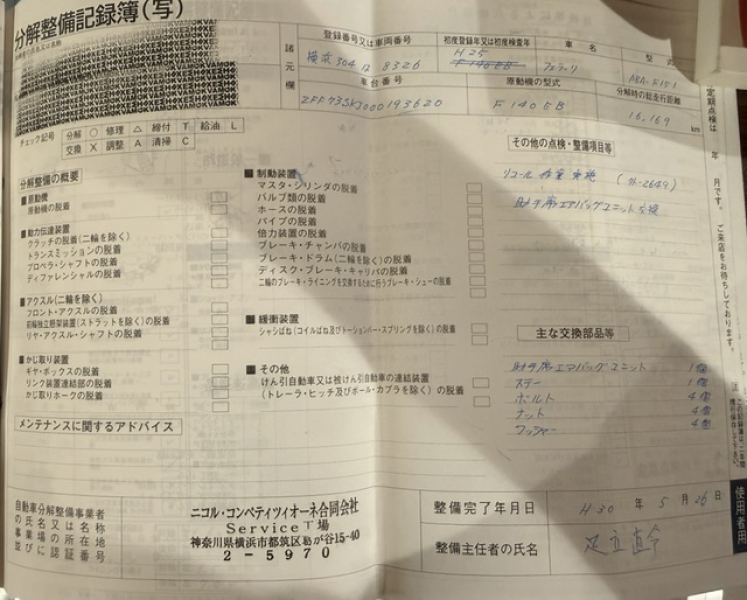 分解整備記録簿(写)
登録番号又は車両番号
初度登録年又は初度検査年
車名
型式
諸元欄
横浜 304 ひ 8326
H25
F140EB
フェラーリ
ABA-F151
車台番号
原動機の型式
分解時の総走行距離
ZFF73SKJ000193620
F140EB
16,169 km
チェック記号
分解 ○ 修理 △ 締付 T 給油 L
交換 X 調整 A 清掃 C
分解整備の概要
■原動機
原動機の脱着
■動力伝達装置
クラッチの脱着(二輪を除く)
トランスミッションの脱着
プロペラ・シャフトの脱着
ディファレンシャルの脱着
■アクスル(二輪を除く)
フロント・アクスルの脱着
前輪独立懸架装置(ストラットを除く)の脱着
リヤ・アクスル・シャフトの脱着
■かじ取り装置
ギヤ・ボックスの脱着
リンク装置連結部の脱着
かじ取りホークの脱着
■制動装置
マスタ・シリンダの脱着
バルブ類の脱着
ホースの脱着
パイプの脱着
倍力装置の脱着
ブレーキ・チャンバの脱着
ブレーキ・ドラム(二輪を除く)の脱着
ディスク・ブレーキ・キャリパの脱着
二輪のブレーキ・ライニングを交換するために行うブレーキ・シューの脱着
■緩衝装置
シャシばね(コイルばね及びトーションバー・スプリングを除く)の脱着
■その他
けん引自動車又は被けん引自動車の連結装置
(トレーラ・ヒッチ及びボール・カプラを除く)の脱着
その他の点検・整備項目等
リコール作業実施 (外-2649)
助手席エアバッグユニット交換
主な交換部品等
助手席エアバッグユニット 1個
ステー 1個
ボルト 4個
ナット 4個
ワッシャー 4個
メンテナンスに関するアドバイス
定期点検は 年 月です。ご来店をお待ちしております。
使用者用
自動車分解整備事業者
の氏名又は名称
事業場の所在地
並びに認証番号
ニコル・コンペティツィオーネ合同会社
Service工場
神奈川県横浜市都筑区葛が谷15-40
2-5970
整備完了年月日
H30 年 5 月 26 日
整備主任者の氏名
足立直